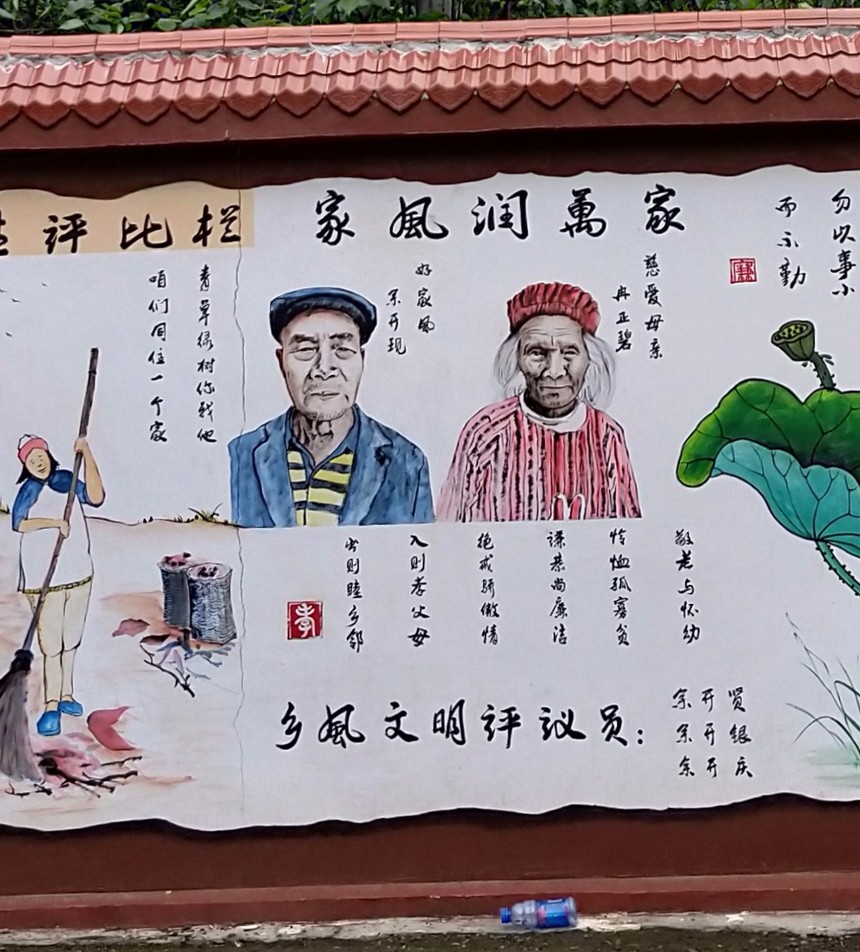 生评比栏
青草绿树你我他
咱们同住一个家
家風润萬家
好家風
余开现
慈爱母亲
冉正碧
敬老与怀幼
怜恤孤寡贫
谦恭尚廉洁
绝戒骄傲情
入则孝父母
出则睦乡邻
孝
乡風文明评议员：
余开贤
余开银
余开庆
勿以事小
而不勤